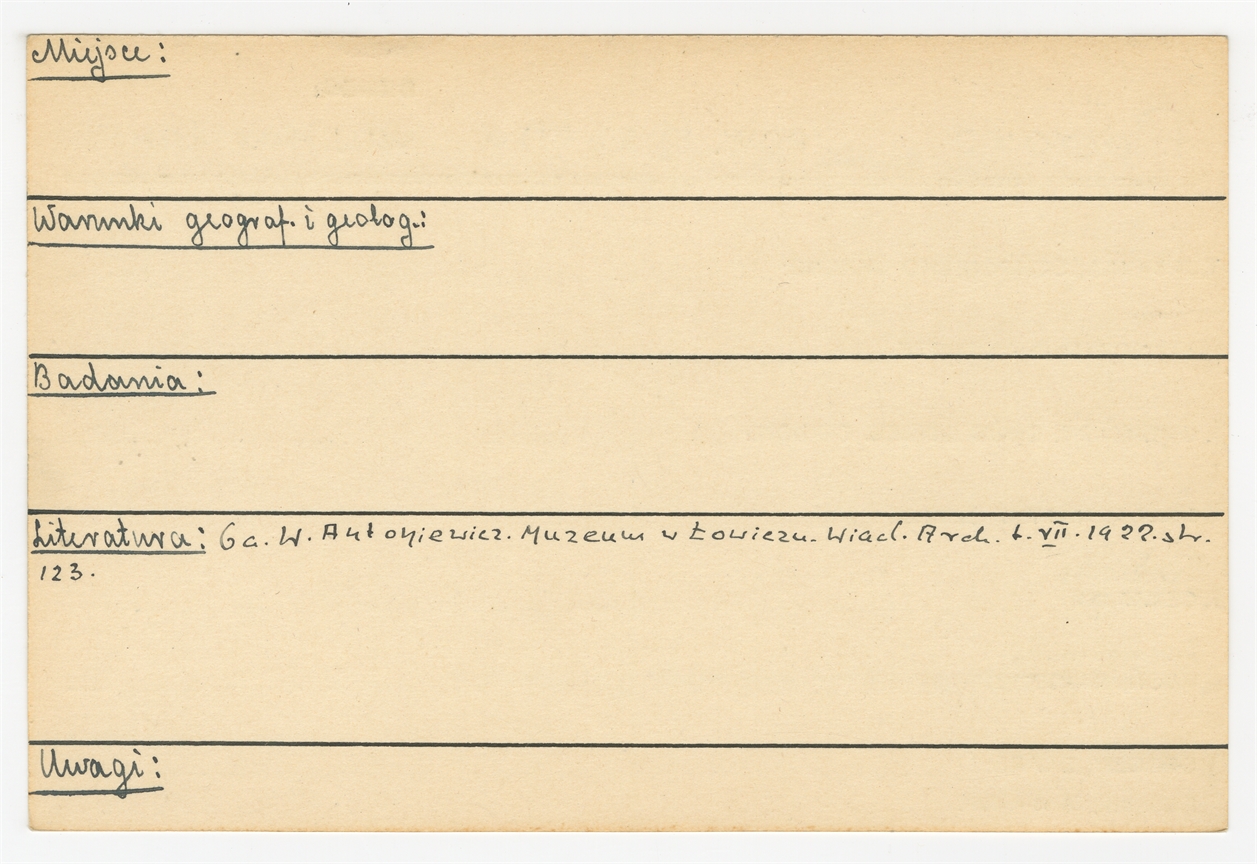 Miejsce:
Warunki geograf. i geolog.:
Badania:
Literatura: 6a. W. Antoniewicz. Muzeum w Łowiczu. Wiad. Arch. t. VII. 1922. str.
123.
Uwagi: